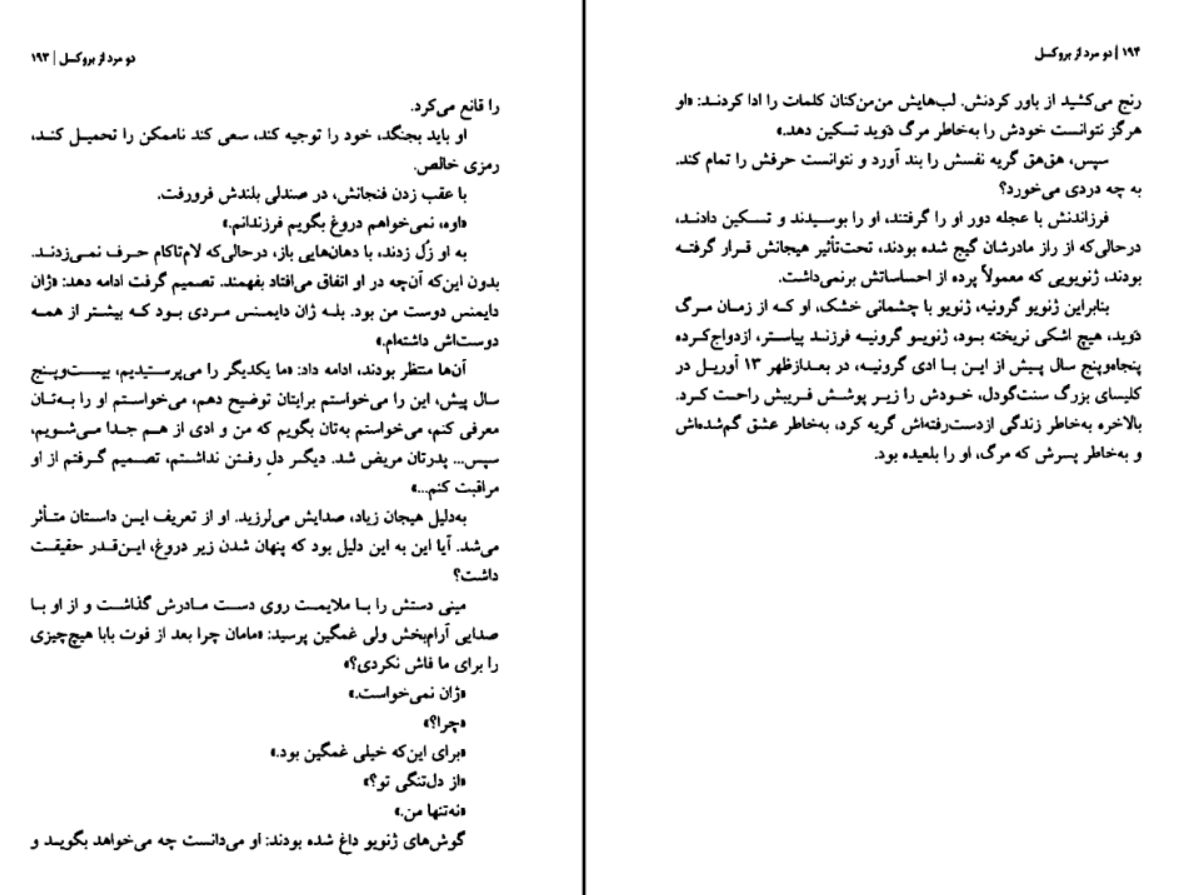 دو مرد از بروکسل | ۱۹۳
را قانع می‌کرد.
او باید بجنگد، خود را توجیه کند، سعی کند ناممکن را تحمیل کند،
رمزی خالص.
با عقب زدن فنجانش، در صندلی بلندش فرورفت.
«اوه، نمی‌خواهم دروغ بگویم فرزندانم.»
به او زُل زدند، با دهان‌هایی باز، درحالی‌که لام‌تاکام حرف نمی‌زدند.
بدون این‌که آن‌چه در او اتفاق می‌افتاد بفهمند. تصمیم گرفت ادامه دهد: «ژان
دایمنس دوست من بود. بله ژان دایمنس مردی بود که بیشتر از همه
دوست‌اش داشته‌ام.»
آن‌ها منتظر بودند، ادامه داد: «ما یکدیگر را می‌پرستیدیم، بیست‌وپنج
سال پیش، این را می‌خواستم برایتان توضیح دهم، می‌خواستم او را به‌تان
معرفی کنم، می‌خواستم به‌تان بگویم که من و ادی از هم جدا می‌شویم،
سپس... پدرتان مریض شد. دیگر دلِ رفتن نداشتم، تصمیم گرفتم از او
مراقبت کنم...»
به‌دلیل هیجان زیاد، صدایش می‌لرزید. او از تعریف این داستان متأثر
می‌شد. آیا این به این دلیل بود که پنهان شدن زیر دروغ، این‌قدر حقیقت
داشت؟
مینی دستش را با ملایمت روی دست مادرش گذاشت و از او با
صدایی آرام‌بخش ولی غمگین پرسید: «مامان چرا بعد از فوت بابا هیچ‌چیزی
را برای ما فاش نکردی؟»
«ژان نمی‌خواست.»
«چرا؟»
«برای این‌که خیلی غمگین بود.»
«از دل‌تنگی تو؟»
«نه‌تنها من.»
گوش‌های ژنویو داغ شده بودند: او می‌دانست چه می‌خواهد بگوید و
۱۹۴ | دو مرد از بروکسل
رنج می‌کشید از باور کردنش. لب‌هایش من‌من‌کنان کلمات را ادا کردند: «او
هرگز نتوانست خودش را به‌خاطر مرگ دَوید تسکین دهد.»
سپس، هق‌هق گریه نفسش را بند آورد و نتوانست حرفش را تمام کند.
به چه دردی می‌خورد؟
فرزاندنش با عجله دور او را گرفتند، او را بوسیدند و تسکین دادند،
درحالی‌که از راز مادرشان گیج شده بودند، تحت‌تأثیر هیجانش قرار گرفته
بودند، ژنویویی که معمولاً پرده از احساساتش برنمی‌داشت.
بنابراین ژنویو گرونیه، ژنویو با چشمانی خشک، او که از زمان مرگ
دَوید، هیچ اشکی نریخته بود، ژنویو گرونیه فرزند پیاستر، ازدواج‌کرده
پنجاه‌وپنج سال پیش از این با ادی گرونیه، در بعدازظهر ۱۳ آوریل در
کلیسای بزرگ سنت‌گودل، خودش را زیر پوشش فریبش راحت کرد.
بالاخره به‌خاطر زندگی ازدست‌رفته‌اش گریه کرد، به‌خاطر عشق گم‌شده‌اش
و به‌خاطر پسرش که مرگ، او را بلعیده بود.